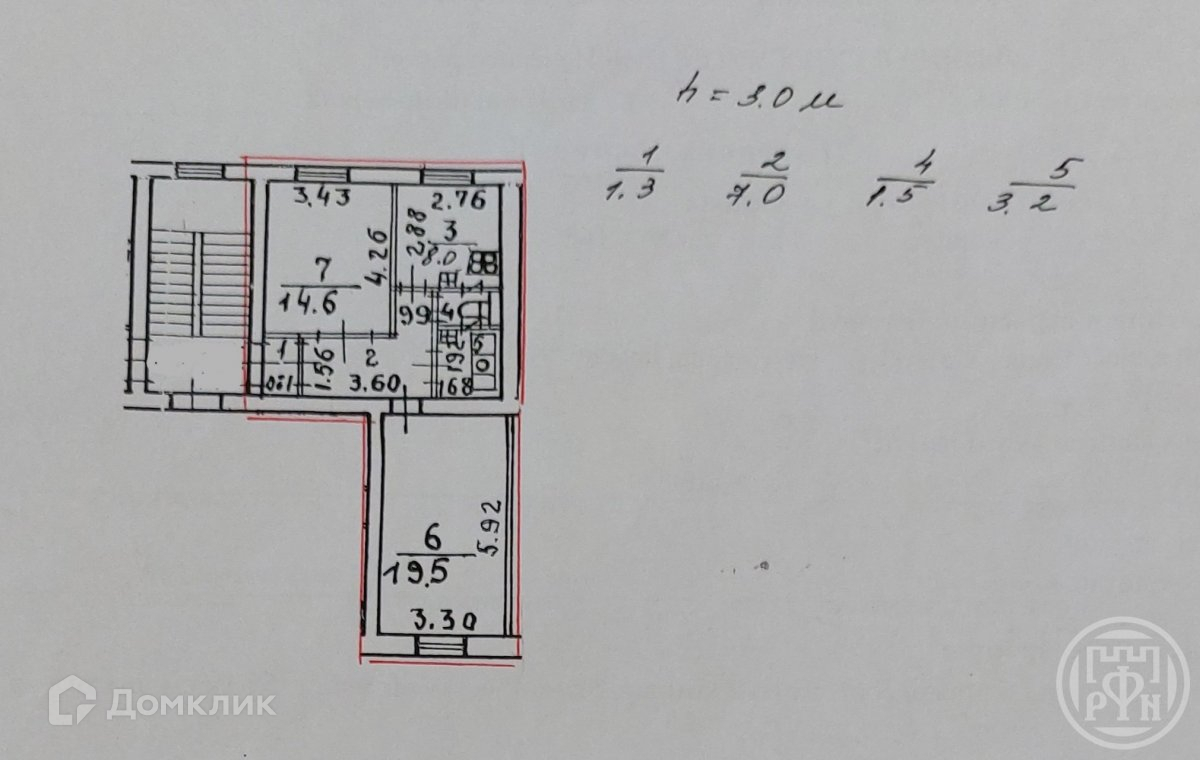 h = 3.0 м
1 2 4 5
1.3 7.0 1.5 3.2
3.43 2.76
2.88 3
8.0
4.26
7
14.6
99 4
1 1.56 2 192 5
3.60 168
6
19.5
5.92
3.30
Домклик
РФН